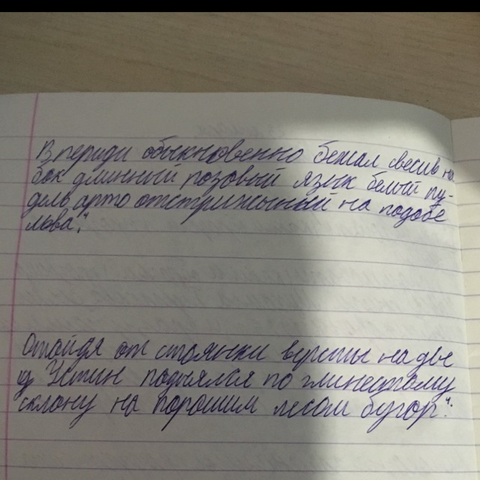 Впериди обыкновенно бежал свесив на
бок длинний розовый язык белый пу-
дель арто отстрижыный на подобе
льва".
Отайдя от стоянки версты на две
Устин поднялся по глинестому
склону на порошим лесом бугор".